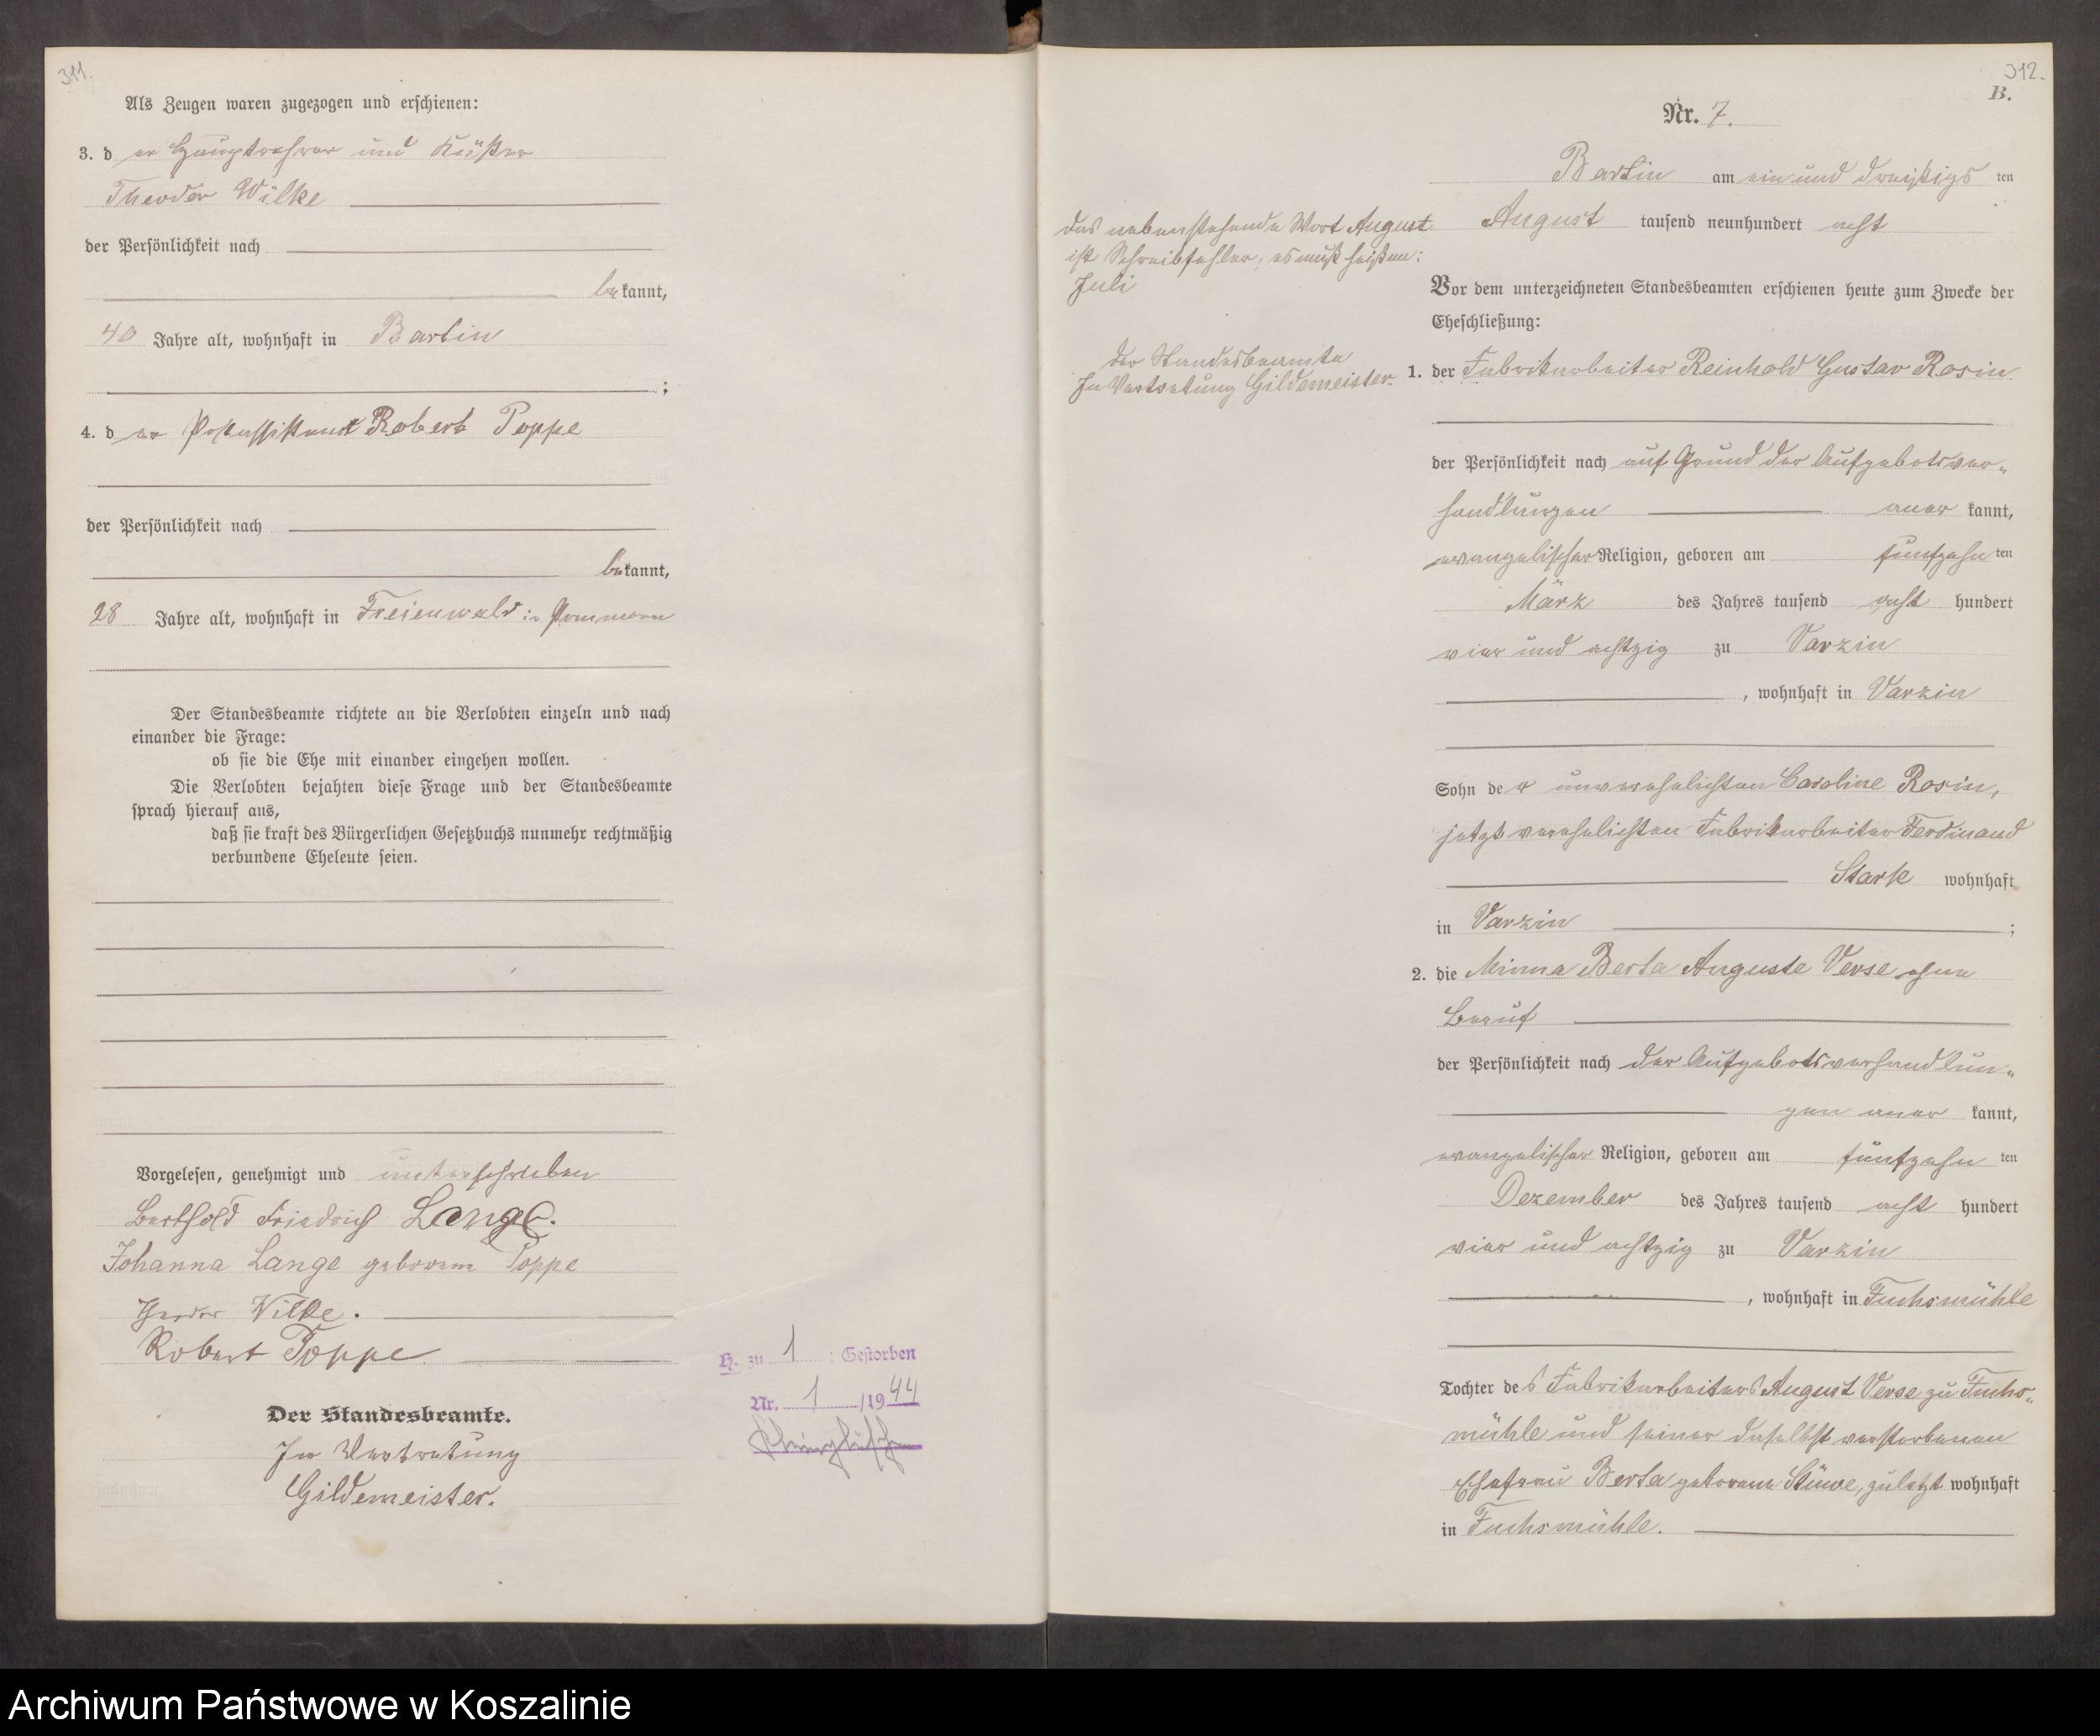 311.
Als Zeugen waren zugezogen und erschienen:
3. d er Hauptlehrer und Küster
Theodor Wilke
der Persönlichkeit nach
be kannt,
40 Jahre alt, wohnhaft in Bartin
;
4. d er Postassistent Robert Poppe
der Persönlichkeit nach
be kannt,
28 Jahre alt, wohnhaft in Freienwald in Pommern
Der Standesbeamte richtete an die Verlobten einzeln und nach
einander die Frage:
ob sie die Ehe mit einander eingehen wollen.
Die Verlobten bejahten diese Frage und der Standesbeamte
sprach hierauf aus,
daß sie kraft des Bürgerlichen Gesetzbuchs nunmehr rechtmäßig
verbundene Eheleute seien.
Vorgelesen, genehmigt und unterschrieben
Berthold Friedrich Lange.
Johanna Lange geborene Poppe
Theodor Wilke.
Robert Poppe
Der Standesbeamte.
In Vertretung
Gildemeister.
H. zu 1 : Gestorben
Nr. 1 /1944
312.
B.
Nr. 7.
Bartin am ein und dreißigs ten
August tausend neunhundert acht
das nebenstehende Wort August
ist Schreibfehler, es muß heißen:
Juli
Der Standesbeamte
In Vertretung Gildemeister.
Vor dem unterzeichneten Standesbeamten erschienen heute zum Zwecke der
Eheschließung:
1. der Fabrikarbeiter Reinhold Gustav Rosin
der Persönlichkeit nach auf Grund der Aufgebotsver-
handlungen aner kannt,
evangelischer Religion, geboren am fünfzehn ten
März des Jahres tausend acht hundert
vier und achtzig zu Varzin
, wohnhaft in Varzin
Sohn de r unverehelichten Caroline Rosin,
jetzt verehelichten Fabrikarbeiter Ferdinand
Stark wohnhaft
in Varzin ;
2. die Minna Berta Auguste Verse ohne
Beruf
der Persönlichkeit nach der Aufgebotsverhandlun-
gen aner kannt,
evangelischer Religion, geboren am fünfzehn ten
Dezember des Jahres tausend acht hundert
vier und achtzig zu Varzin
, wohnhaft in Fuchsmühle
Tochter de s Fabrikarbeiters August Verse zu Fuchs-
mühle und seiner daselbst verstorbenen
Ehefrau Berta geborene Stüwe, zuletzt wohnhaft
in Fuchsmühle.
Archiwum Państwowe w Koszalinie